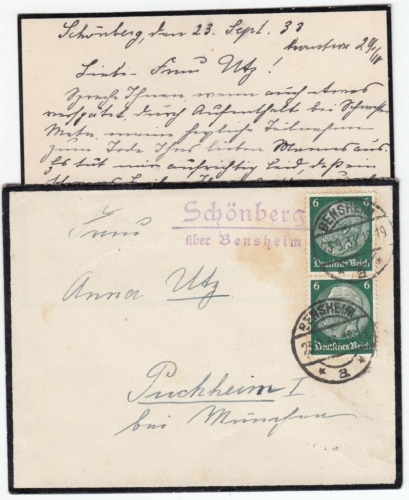 Schönberg, den 23. Sept. 33
Liebe Frau Utz!
Spreche Ihnen, wenn auch etwas
verspätet, durch Aufenthalt bei Schwester
Meta, meine herzliche Teilnahme
zum Tode Ihres lieben Mannes aus.
Es tut mir aufrichtig leid, daß ein
Schönberg
über Bensheim
Frau
Anna Utz
Puchheim I
bei München
6 6
BENSHEIM
Deutsches Reich
a
6 6
BENSHEIM
Deutsches Reich
a